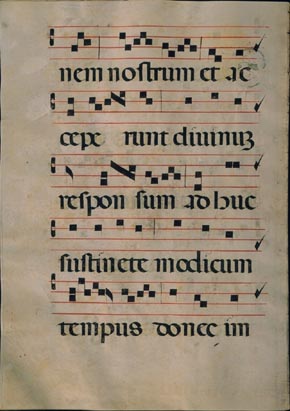 nem nostrum et ac
cepe runt diuinuʒ
respon sum adhuc
sustinete modicum
tempus donec im